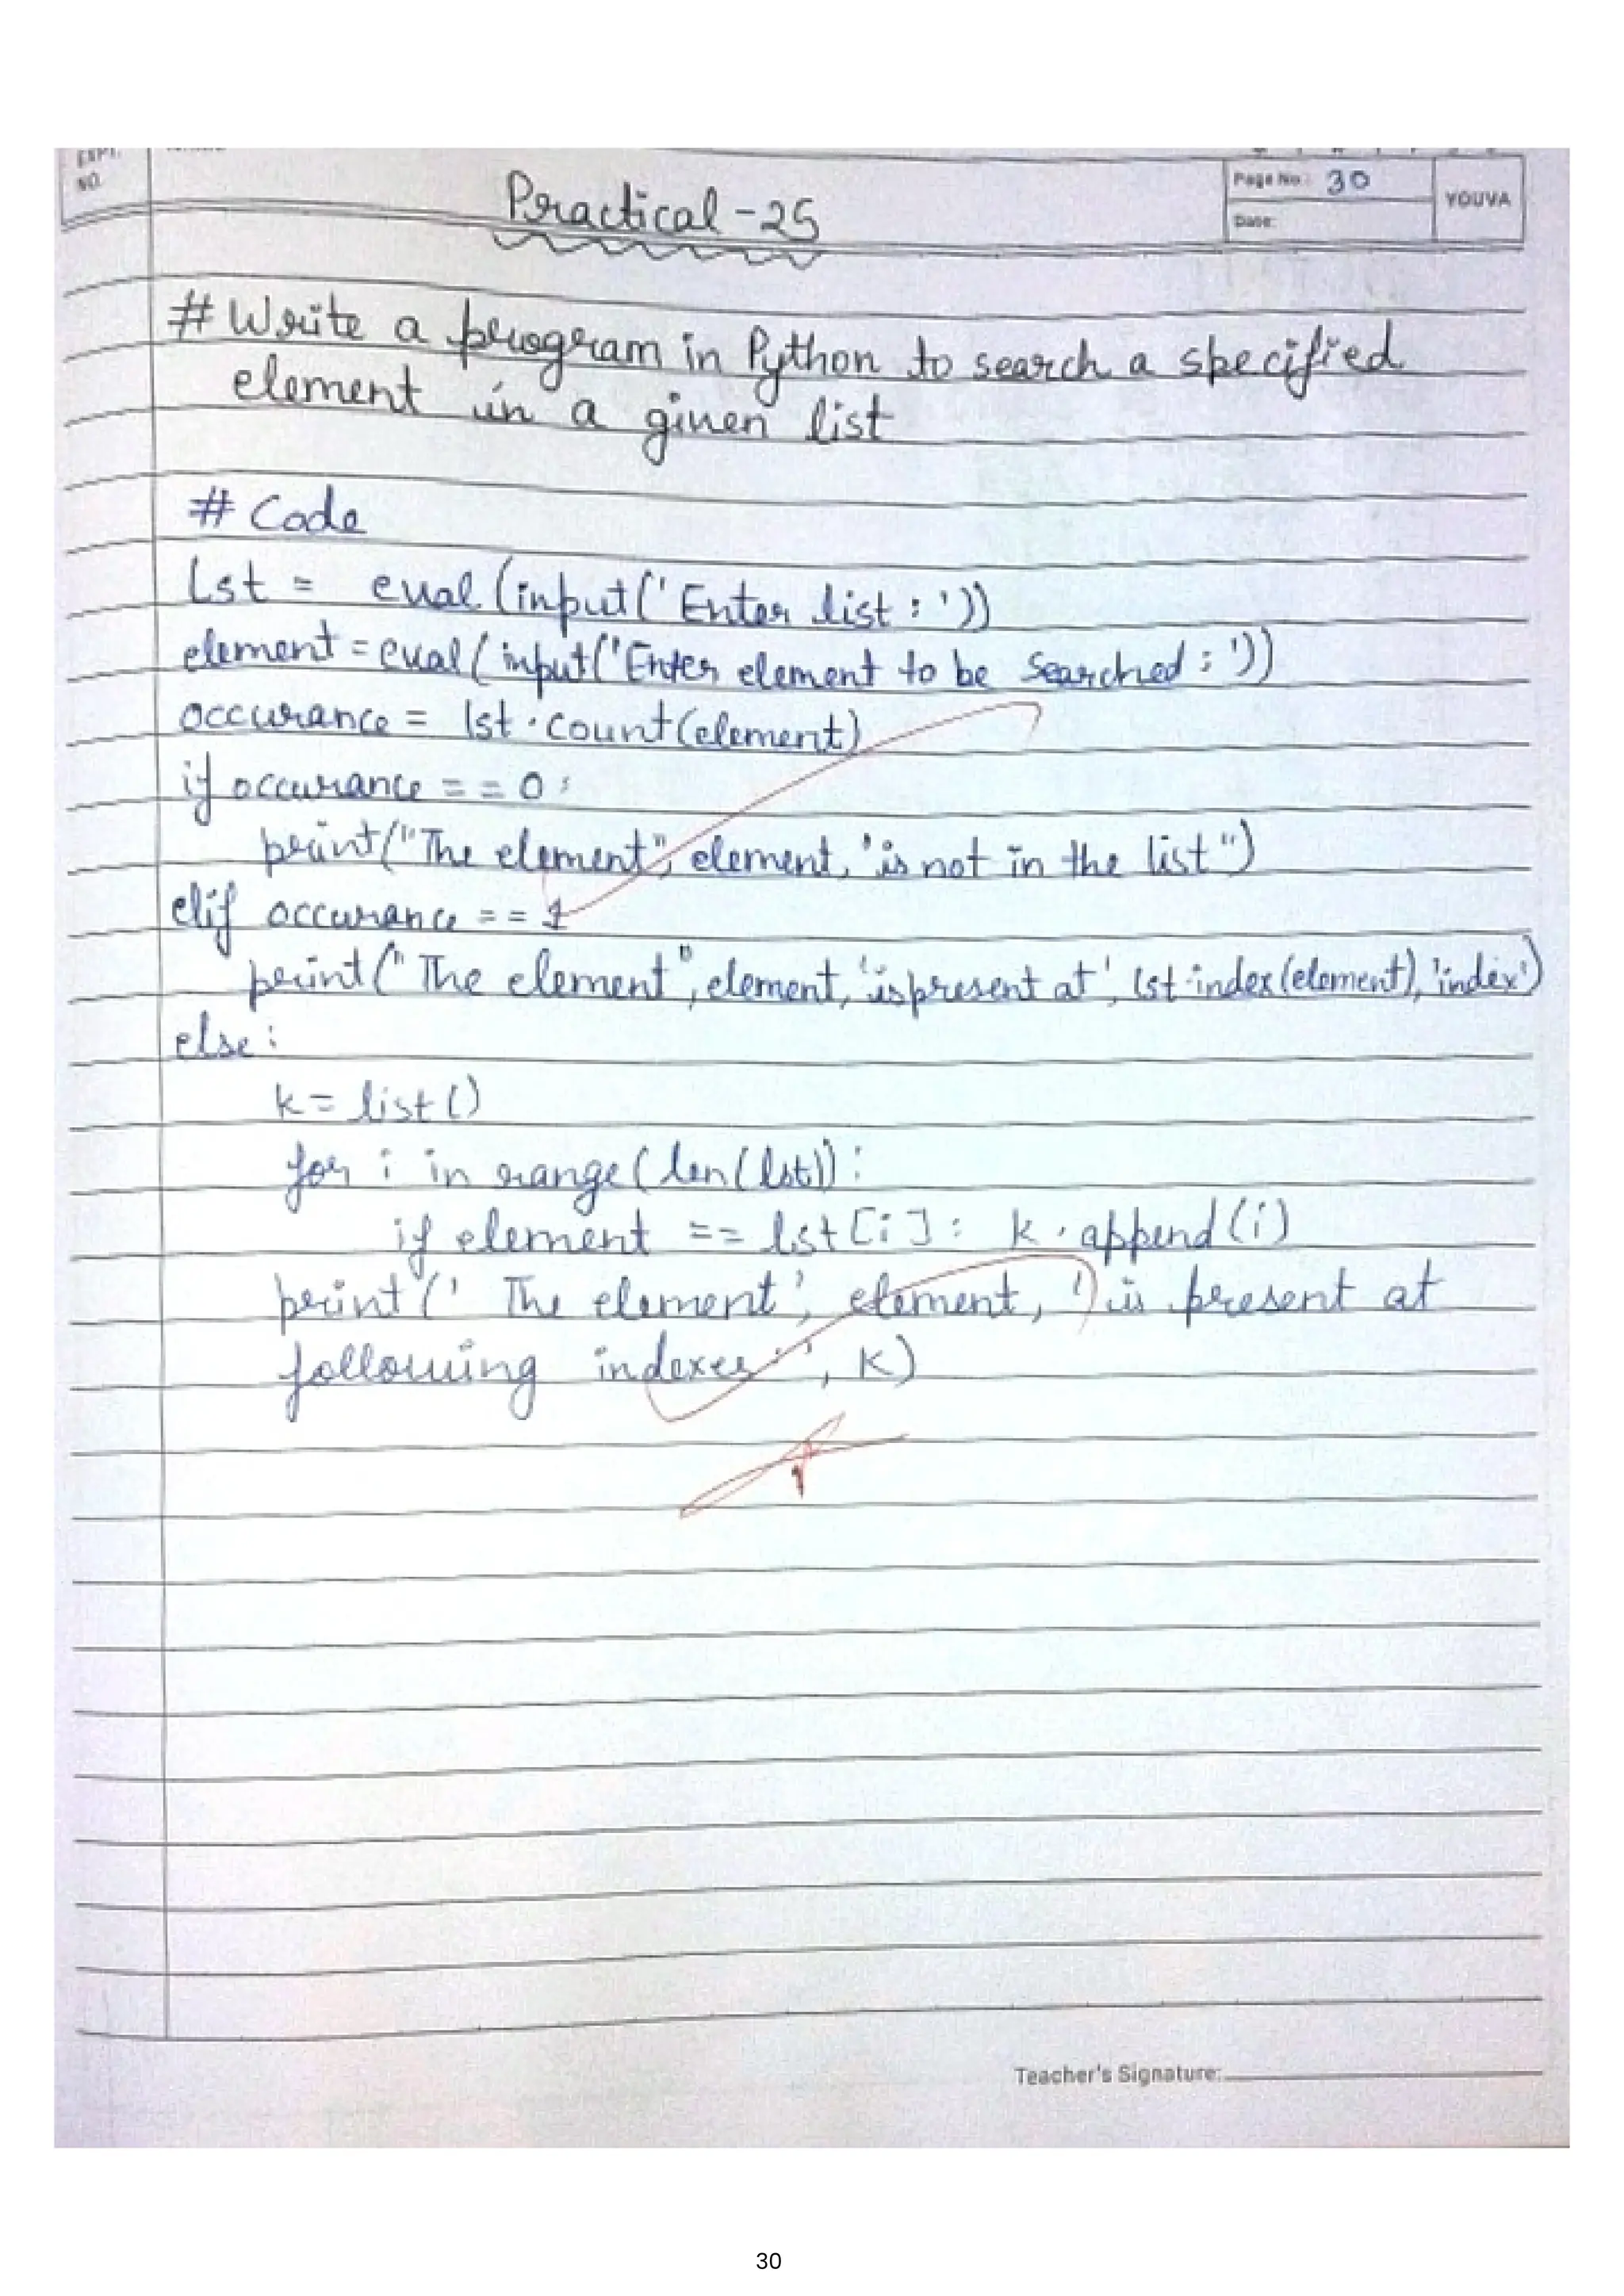 EXPT.
NO.
Page No.: 30
YOUVA
Date:
Practical - 25
# Write a program in Python to search a specified
element in a given list
# Code
lst = eval(input('Enter list : '))
element = eval(input('Enter element to be searched : '))
occurance = lst.count(element)
if occurance == 0 :
print("The element", element, 'is not in the list")
elif occurance == 1
print("The element", element, 'is present at', lst.index(element), 'index')
else :
k = list()
for i in range(len(lst)) :
if element == lst[i] : k.append(i)
print(' The element', element, ' is present at
following indexes :', k)
Teacher's Signature:
30